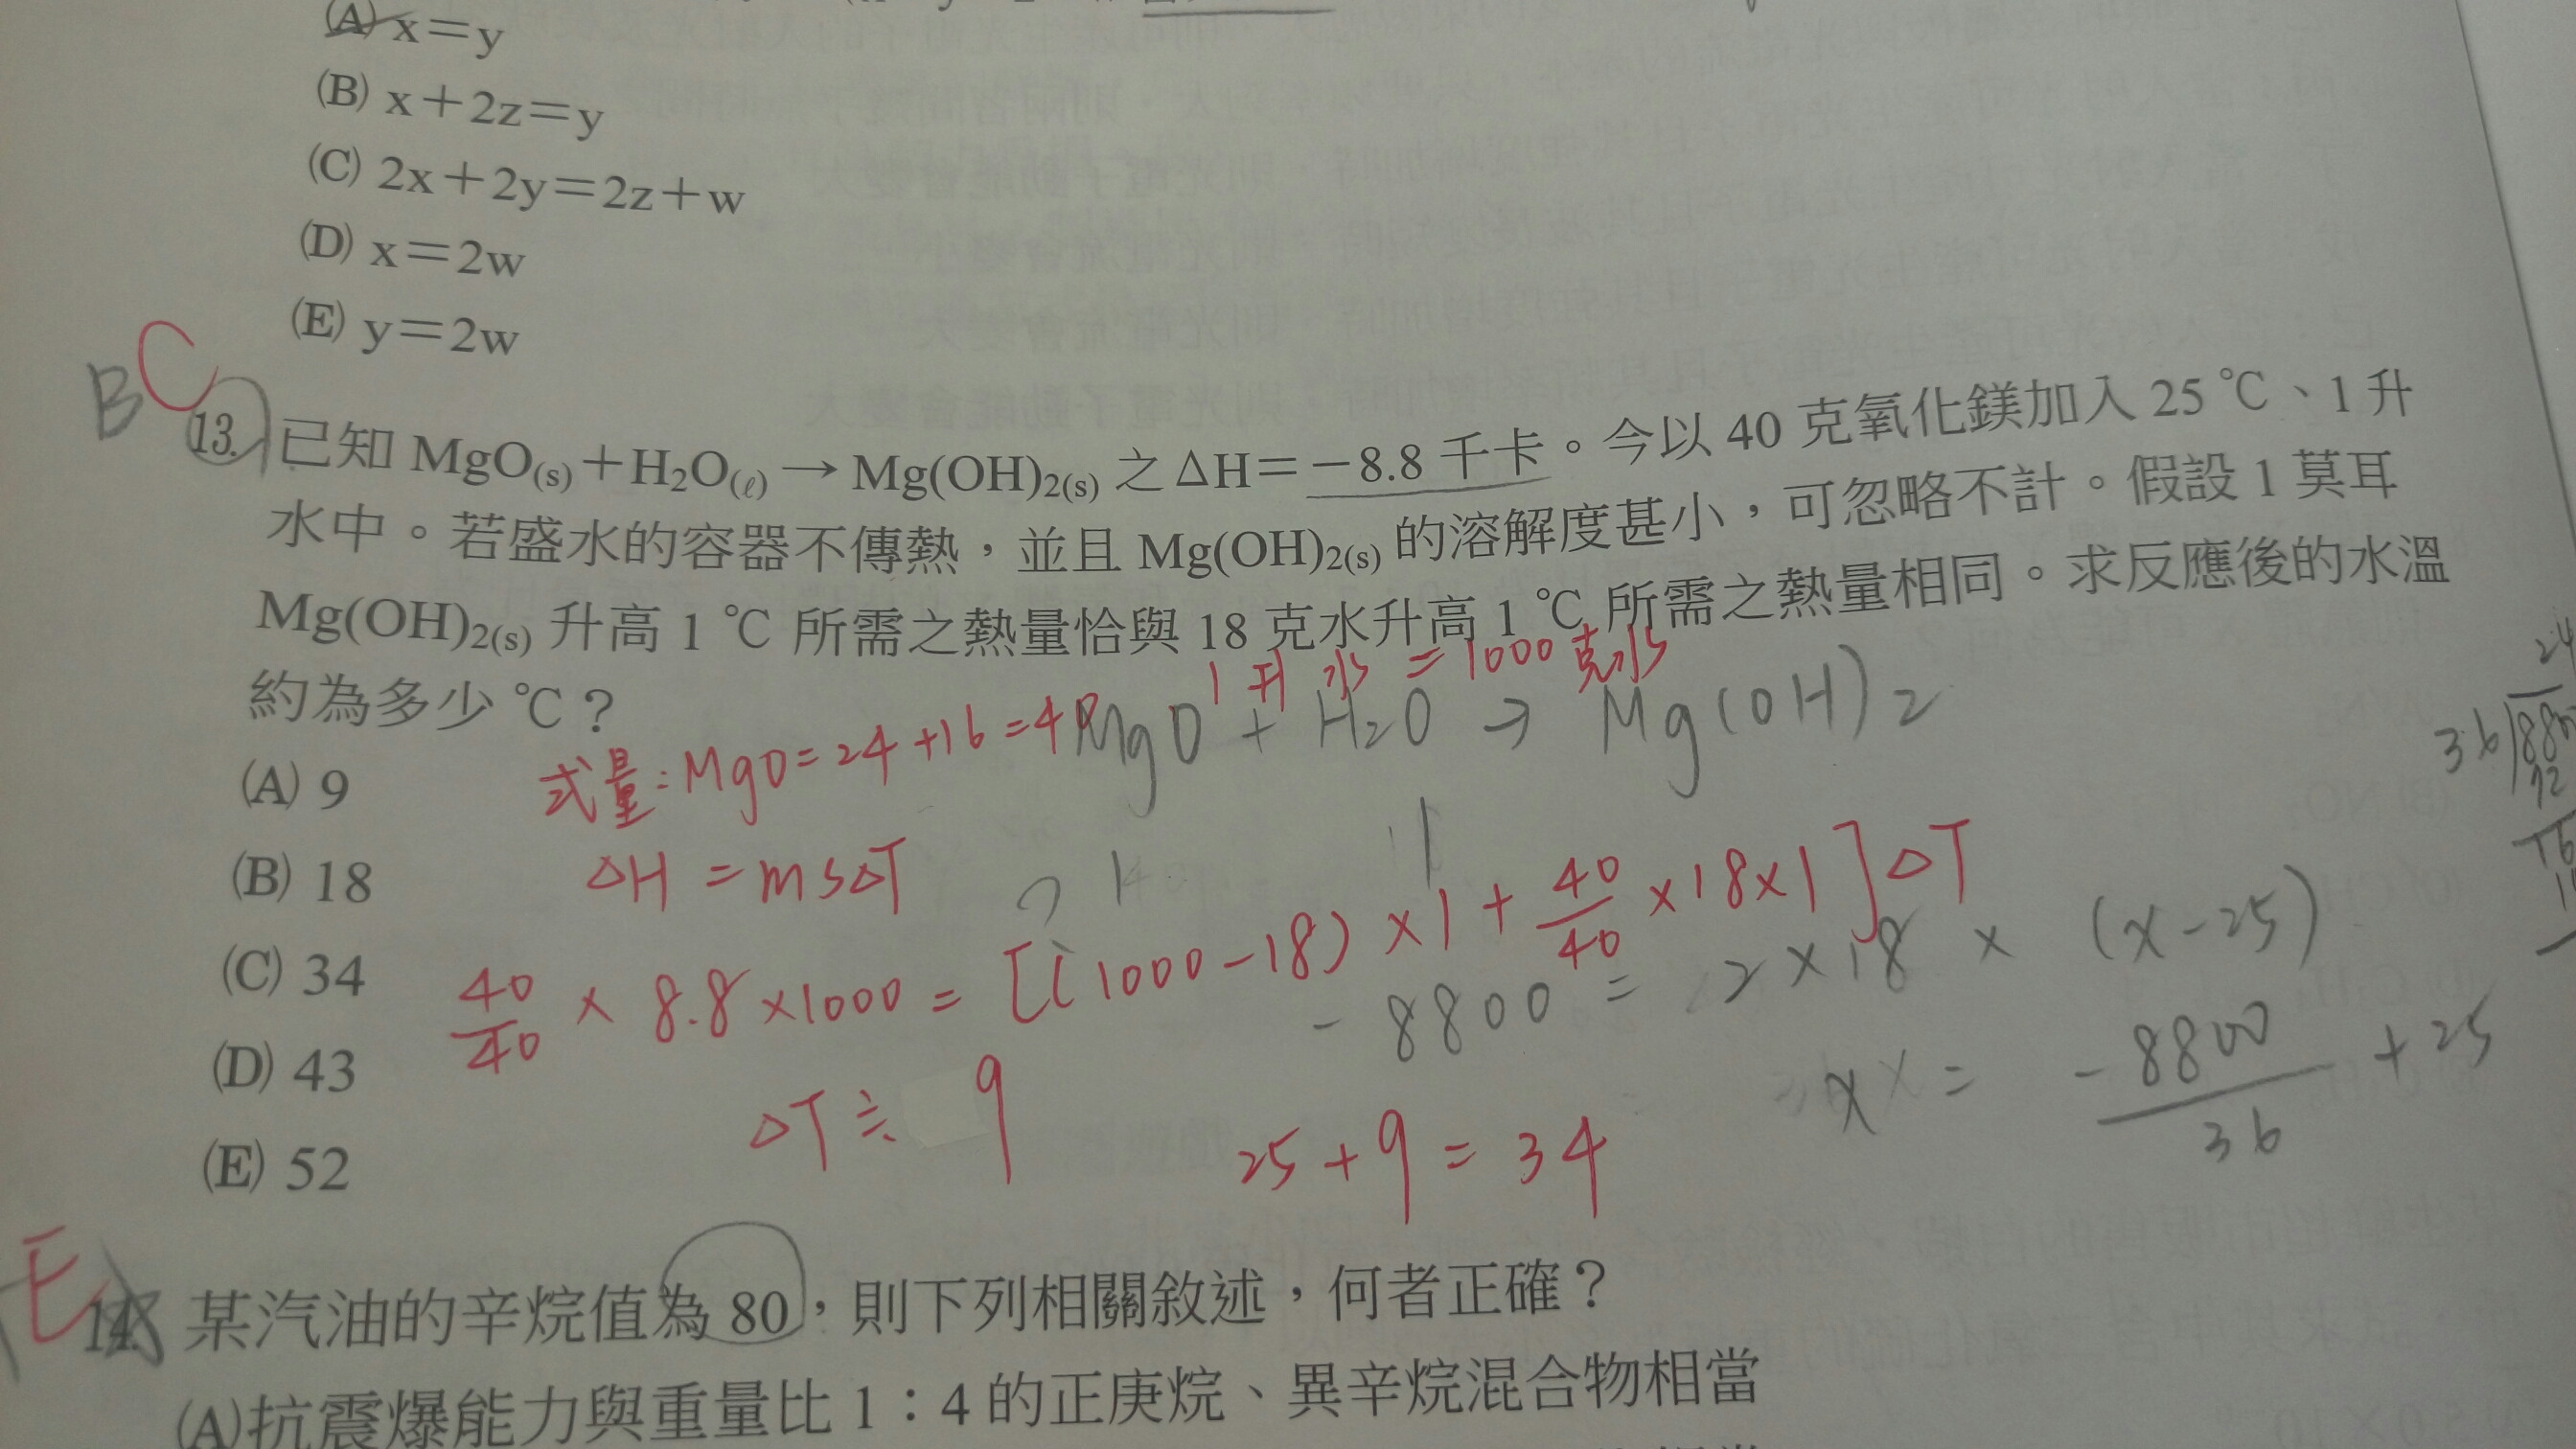 (A) x＝y
(B) x＋2z＝y
(C) 2x＋2y＝2z＋w
(D) x＝2w
(E) y＝2w
B C
13. 已知 MgO(s)＋H₂O(ℓ) → Mg(OH)₂(s) 之 ΔH＝－8.8 千卡。今以 40 克氧化鎂加入 25 ℃、1 升
水中。若盛水的容器不傳熱，並且 Mg(OH)₂(s) 的溶解度甚小，可忽略不計。假設 1 莫耳
Mg(OH)₂(s) 升高 1 ℃ 所需之熱量恰與 18 克水升高 1 ℃ 所需之熱量相同。求反應後的水溫
約為多少 ℃？
1升水 = 1000克水
式量：MgO = 24 + 16 = 40
MgO + H₂O → Mg(OH)₂
(A) 9
(B) 18
ΔH = msΔT
(C) 34
40/40 × 8.8 × 1000 = [(1000-18) × 1 + 40/40 × 18 × 1] ΔT
-8800 = 2 × 18 × (x-25)
(D) 43
ΔT ≒ 9
25 + 9 = 34
x = -8800/36 + 25
(E) 52
E
14. 某汽油的辛烷值為 80，則下列相關敘述，何者正確？
(A)抗震爆能力與重量比 1：4 的正庚烷、異辛烷混合物相當